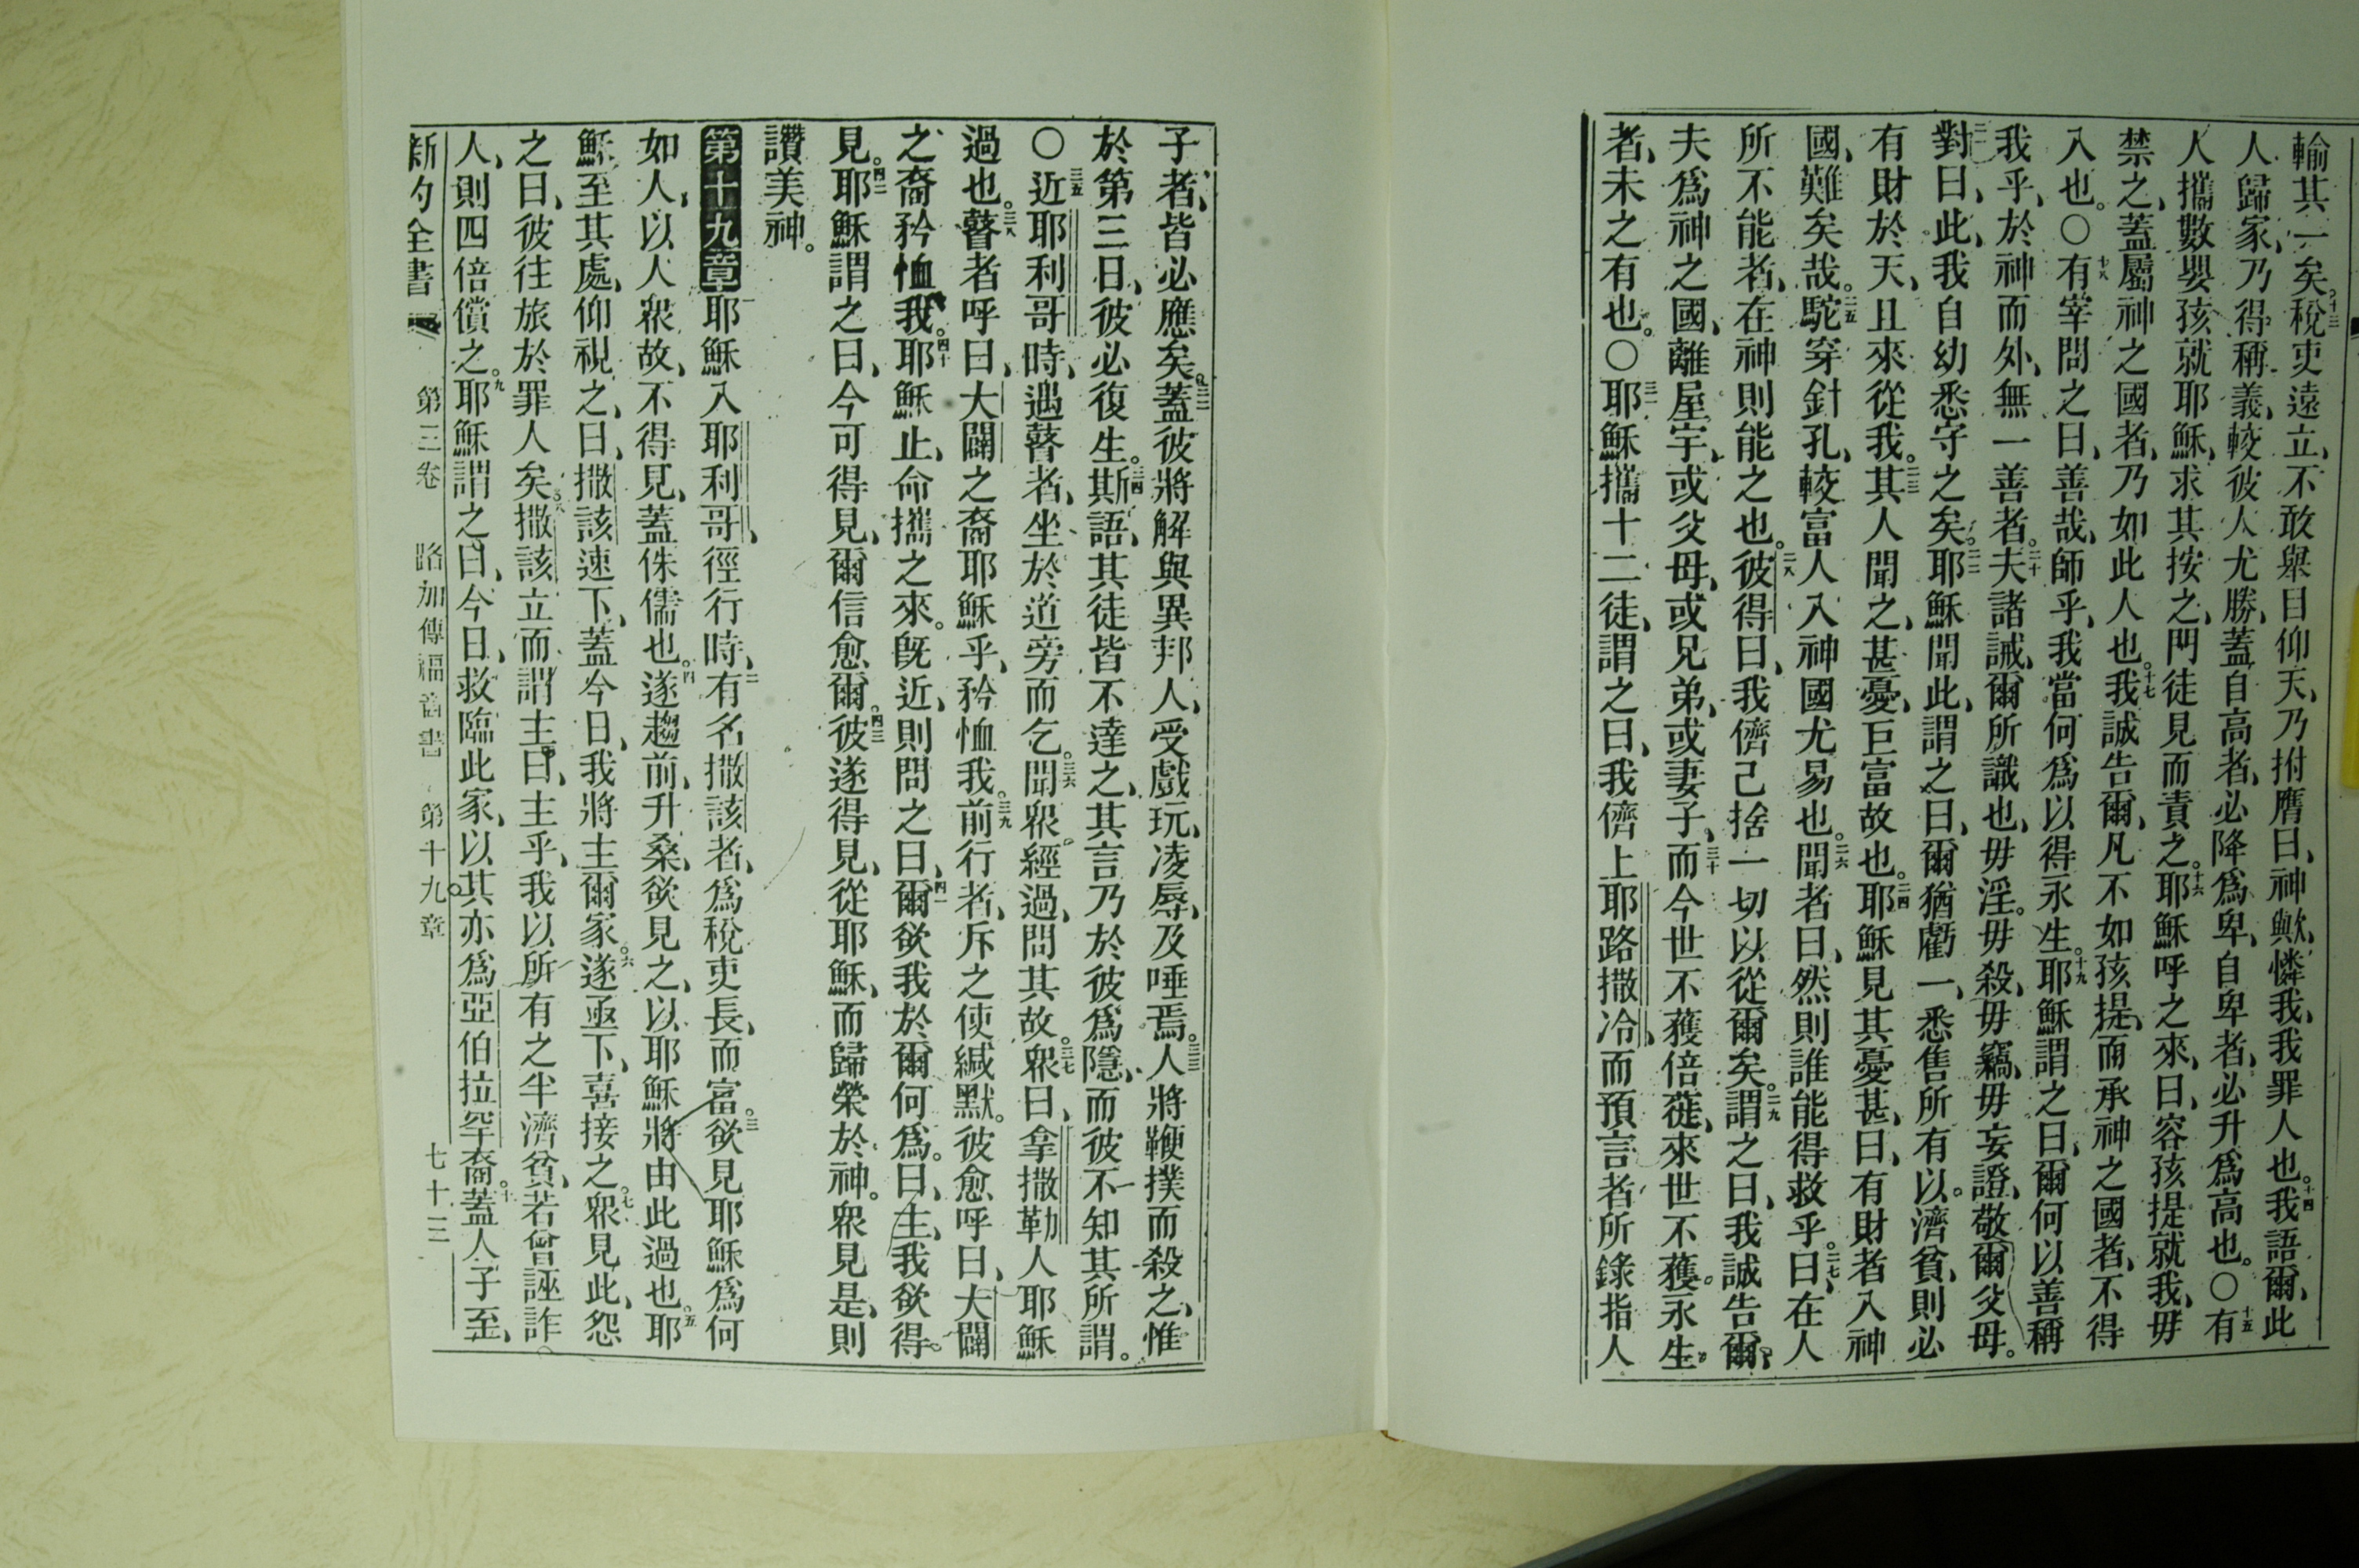 輸其一矣。十三稅吏遠立、不敢舉目仰天、乃拊膺曰、神歟、憐我、我罪人也。十四我語爾、此
人歸家、乃得稱義、較彼人尤勝、蓋自高者、必降爲卑、自卑者、必升爲高也。〇十五有
人攜數嬰孩就耶穌、求其按之、門徒見而責之。十六耶穌呼之來、曰、容孩提就我、毋
禁之、蓋屬神之國者、乃如此人也。十七我誠告爾、凡不如孩提、而承神之國者、不得
入也。〇十八有宰問之曰、善哉、師乎、我當何爲以得永生。十九耶穌謂之曰、爾何以善稱
我乎、於神而外、無一善者。二十夫諸誡、爾所識也、毋淫。毋殺、毋竊、毋妄證、敬爾父母。
對曰、此、我自幼悉守之矣。二二耶穌聞此、謂之曰、爾猶虧一、悉售所有以。濟貧、則必
有財於天、且來從我。二三其人聞之、甚憂、巨富故也。二四耶穌見其憂甚、曰、有財者入神
國、難矣哉。二五駝穿針孔、較富人入神國尤易也。二六聞者曰、然則誰能得救乎。二七曰、在人
所不能者、在神則能之也。二八彼得曰、我儕己捨一切以從爾矣。二九謂之曰、我誠告爾、
夫爲神之國、離屋宇、或父母、或兄弟、或妻子、三十而今世不獲倍蓰、來世不獲。永生
者、未之有也。〇三一耶穌攜十二徒、謂之曰、我儕上耶路撒冷、而預言者所錄指人
子者、皆必應矣。三二蓋彼將解與異邦人、受戲玩、凌辱、及唾焉。三三人將鞭撲而殺之、惟
於第三日、彼必復生。三四斯語、其徒皆不達之、其言乃於彼爲隱、而彼不知其所謂。
〇三五近耶利哥時、遇瞽者、坐於道旁而乞。三六聞衆。經過、問其故。三七衆曰、拿撒勒人耶穌
過也。三八瞽者呼曰、大闢之裔耶穌乎、矜恤我。三九前行者、斥之使緘默。彼愈呼曰、大闢
之裔矜恤我。四十耶穌止、命攜之來。旣近、則問之曰、四一爾欲我於爾何爲。曰、主、我欲得。
見。四二耶穌謂之曰、今可得見、爾信愈爾。四三彼遂得見、從耶穌、而歸榮於神。衆見是、則
讚美神。
第十九章一耶穌入耶利哥、徑行時、二有名撒該者、爲稅吏長、而富。三欲見耶穌爲何
如人、以人衆故、不得見、蓋侏儒也。四遂趨前、升桑、欲見之、以耶穌將由此過也。五耶
穌至其處、仰視之、曰、撒該速下、蓋今日、我將主爾家。六遂亟下、喜接之。七衆見此、怨
之曰、彼往旅於罪人矣。八撒該立而謂主曰、主乎、我以所有之半濟貧、若曾誣詐
人、則四倍償之。九耶穌謂之曰、今日、救臨此家、以其亦爲亞伯拉罕裔。十蓋人子至、
新約全書 第三卷 路加傳福音書 第十九章 七十三